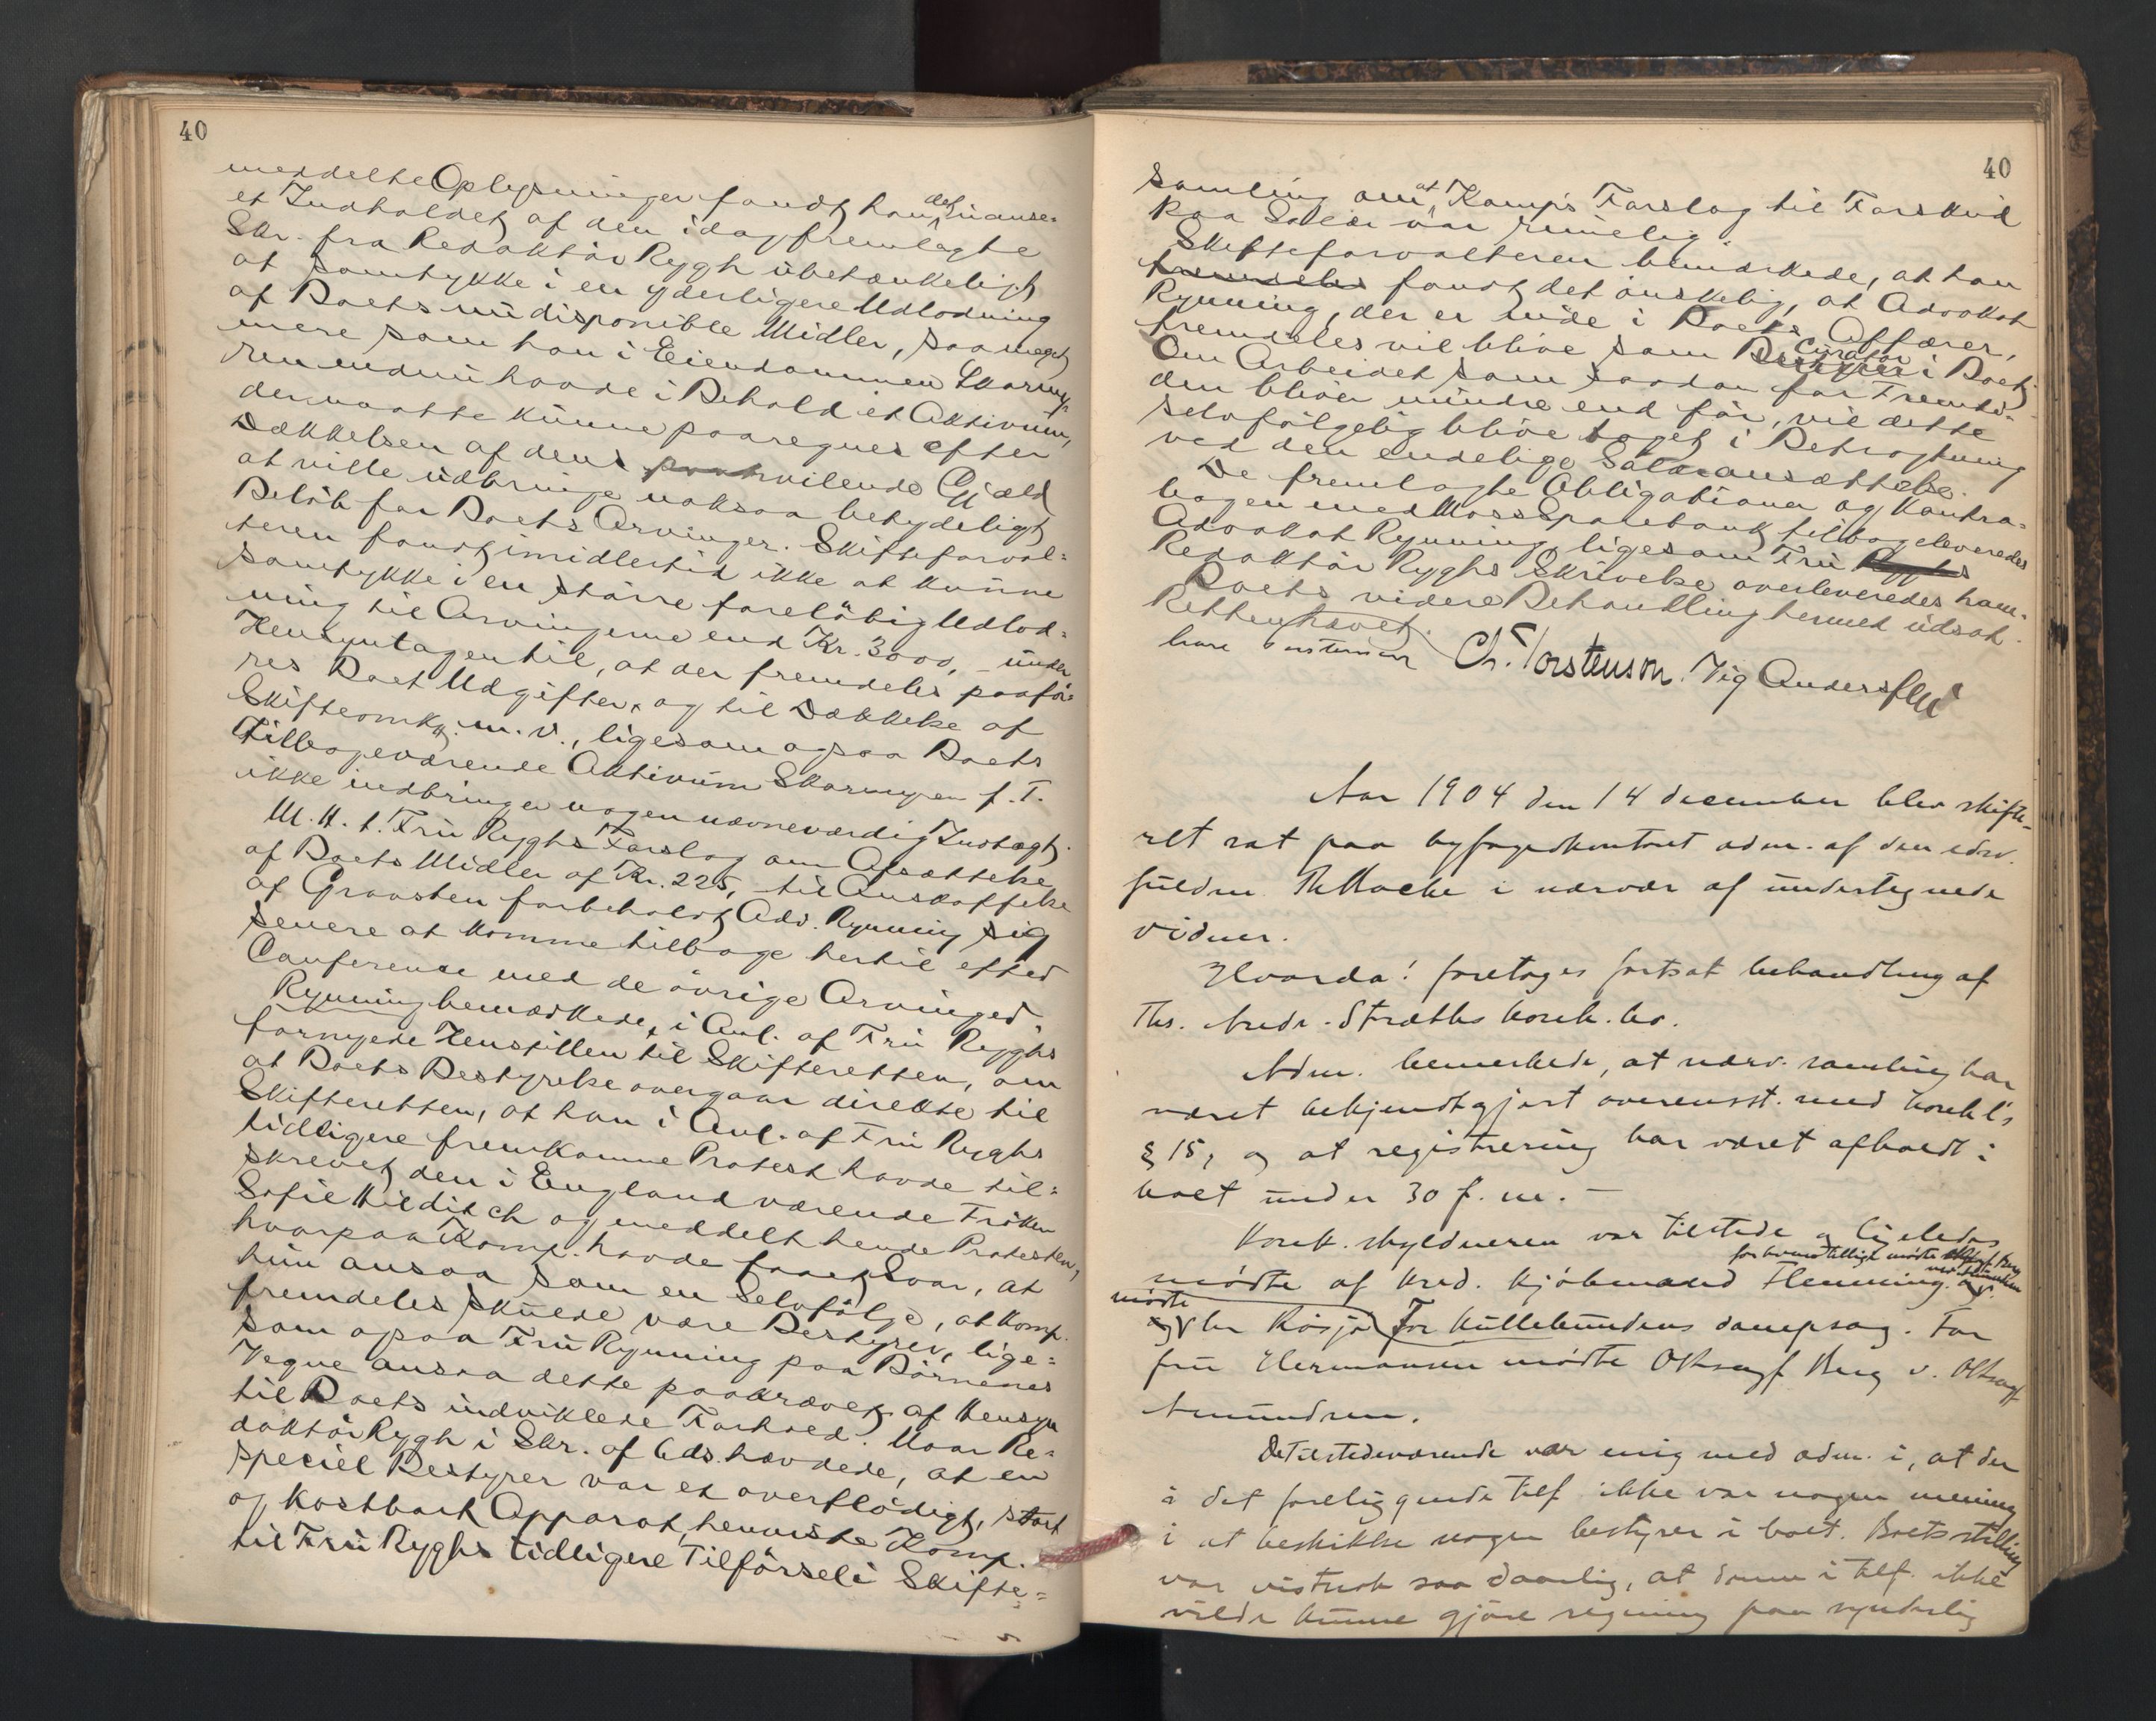 40
meddelte Oplysninger fandt han det uanse-
et Indholdet af den idag fremlagte
Skr. fra Redaktör Rygh ubetænkeligt
at samtykke i en yderligere Udlodning
af Boets nu disponible Midler, saa meget
mere som han i Eiendommen Skarmy-
ren endnu havde i Behold et Aktivum,
der maatte kunne paaregnes efter
Dækkelsen af dens paahvilende Gjæld
at ville udbringe noksaa betydeligt
Belöb for Boets Arvinger. Skifteforval-
teren fandt imidlertid ikke at kunne
samtykke i en större foreløbig Udlod-
ning til Arvingerne end Kr. 3000, - under
Hensyntagen til, at der fremdeles paafö-
res Boet Udgifter, og til Dækkelse af
Skifteomk. m. v., ligesom ogsaa Boets
tilbageværende Aktivum Skarmyren f. T.
ikke indbringer nogen nævneværdig Indtægt.
M. H. t. Fru Ryghs Forslag om Afsættelse
af Boets Midler af Kr. 225, - til Anskaffelse
af Gravsten forbeholdt Adv. Rynning sig
senere at komme tilbage hertil efter
Conference med de övrige Arvinger.
Rynning bemærkede, i Anl. af Fru Ryghs
fornyede Henstillen til Skifteretten, om
at Boets Bestyrelse overgaar direkte til
Skifteretten, at han i Anl. af Fru Ryghs
tidligere fremkomne Protest havde til-
skrevet den i England værende Fröken
Sofie Hilditch og meddelt hende Protesten,
hvorpaa Komp. havde faaet Svar, at
hun ansaa som en Selvfölge, at Komp.
fremdeles skulde være Bestyrer, lige-
som ogsaa Fru Rynning paa Börnenes
Vegne ansaa dette paakrævet af Hensyn
til Boets indviklede Forhold. Naar Re-
daktör Rygh i Skr. af 6ds. hævdede, at en
speciel Bestyrer var et overflödigt, stort
og kostbart Apparat, henviste Komp.
til Fru Ryghs tidligere Tilförsel i Skifte-
40
samling om, at Komp's Forslag til Forskud
paa Salær var rimelig.
Skifteforvalteren bemærkede, at han
fremdeles fandt det önskelig, at Advokat
Rynning, der er inde i Boets Affærer,
fremdeles vil blive som Bestyrer Curator i Boet.
Om Arbeidet som saadan for Fremti-
den bliver mindre end för, vil dette
selvfölgelig blive taget i Betragtning
ved den endelige Salæransættelse.
De fremlagte Obligationer og Kontra-
bogen med Moss Sparebank tilbageleveredes
Advokat Rynning, ligesom Fru Ryghs
Redaktör Ryghs Skrivelse overleveredes ham.
Boets videre Behandling hermed udsat.
Retten hævet.
Chr. Torstenson. Vig Andersen
Aar 1904 den 14 december blev skifte-
ret sat paa byfogedkontoret adm. af den edsv.
fuldm. Th Macke i nærvær af undertegnede
vidner.
Hvorda: foretoges fortsat behandling af
Ths. Andr. Stræthes konk. bo.
Adm. bemerkede, at nærv. samling har
været bekjendtgjort overensst. med konkl's
§ 15, og at registrering har været afholdt i
boet under 30 f. m. -
Konk. skyldneren var tilstede og ligeledes
mødte af kred. kjøbmand Henning.
for hvem tillige mødte
mødte
for Kullebundens dampsag. For
fru Hermansen mødte Oltsagf. Berg v. Oltsagf
Amundsen.
De tilstedeværende var enig med adm. i, at der
i det foreliggende tilf. ikke var nogen mening
i at beskikke nogen bestyrer i boet. Boets stilling
var vistnok saa daarlig, at denne i tilf. ikke
vilde kunne gjøre regning paa synderlig